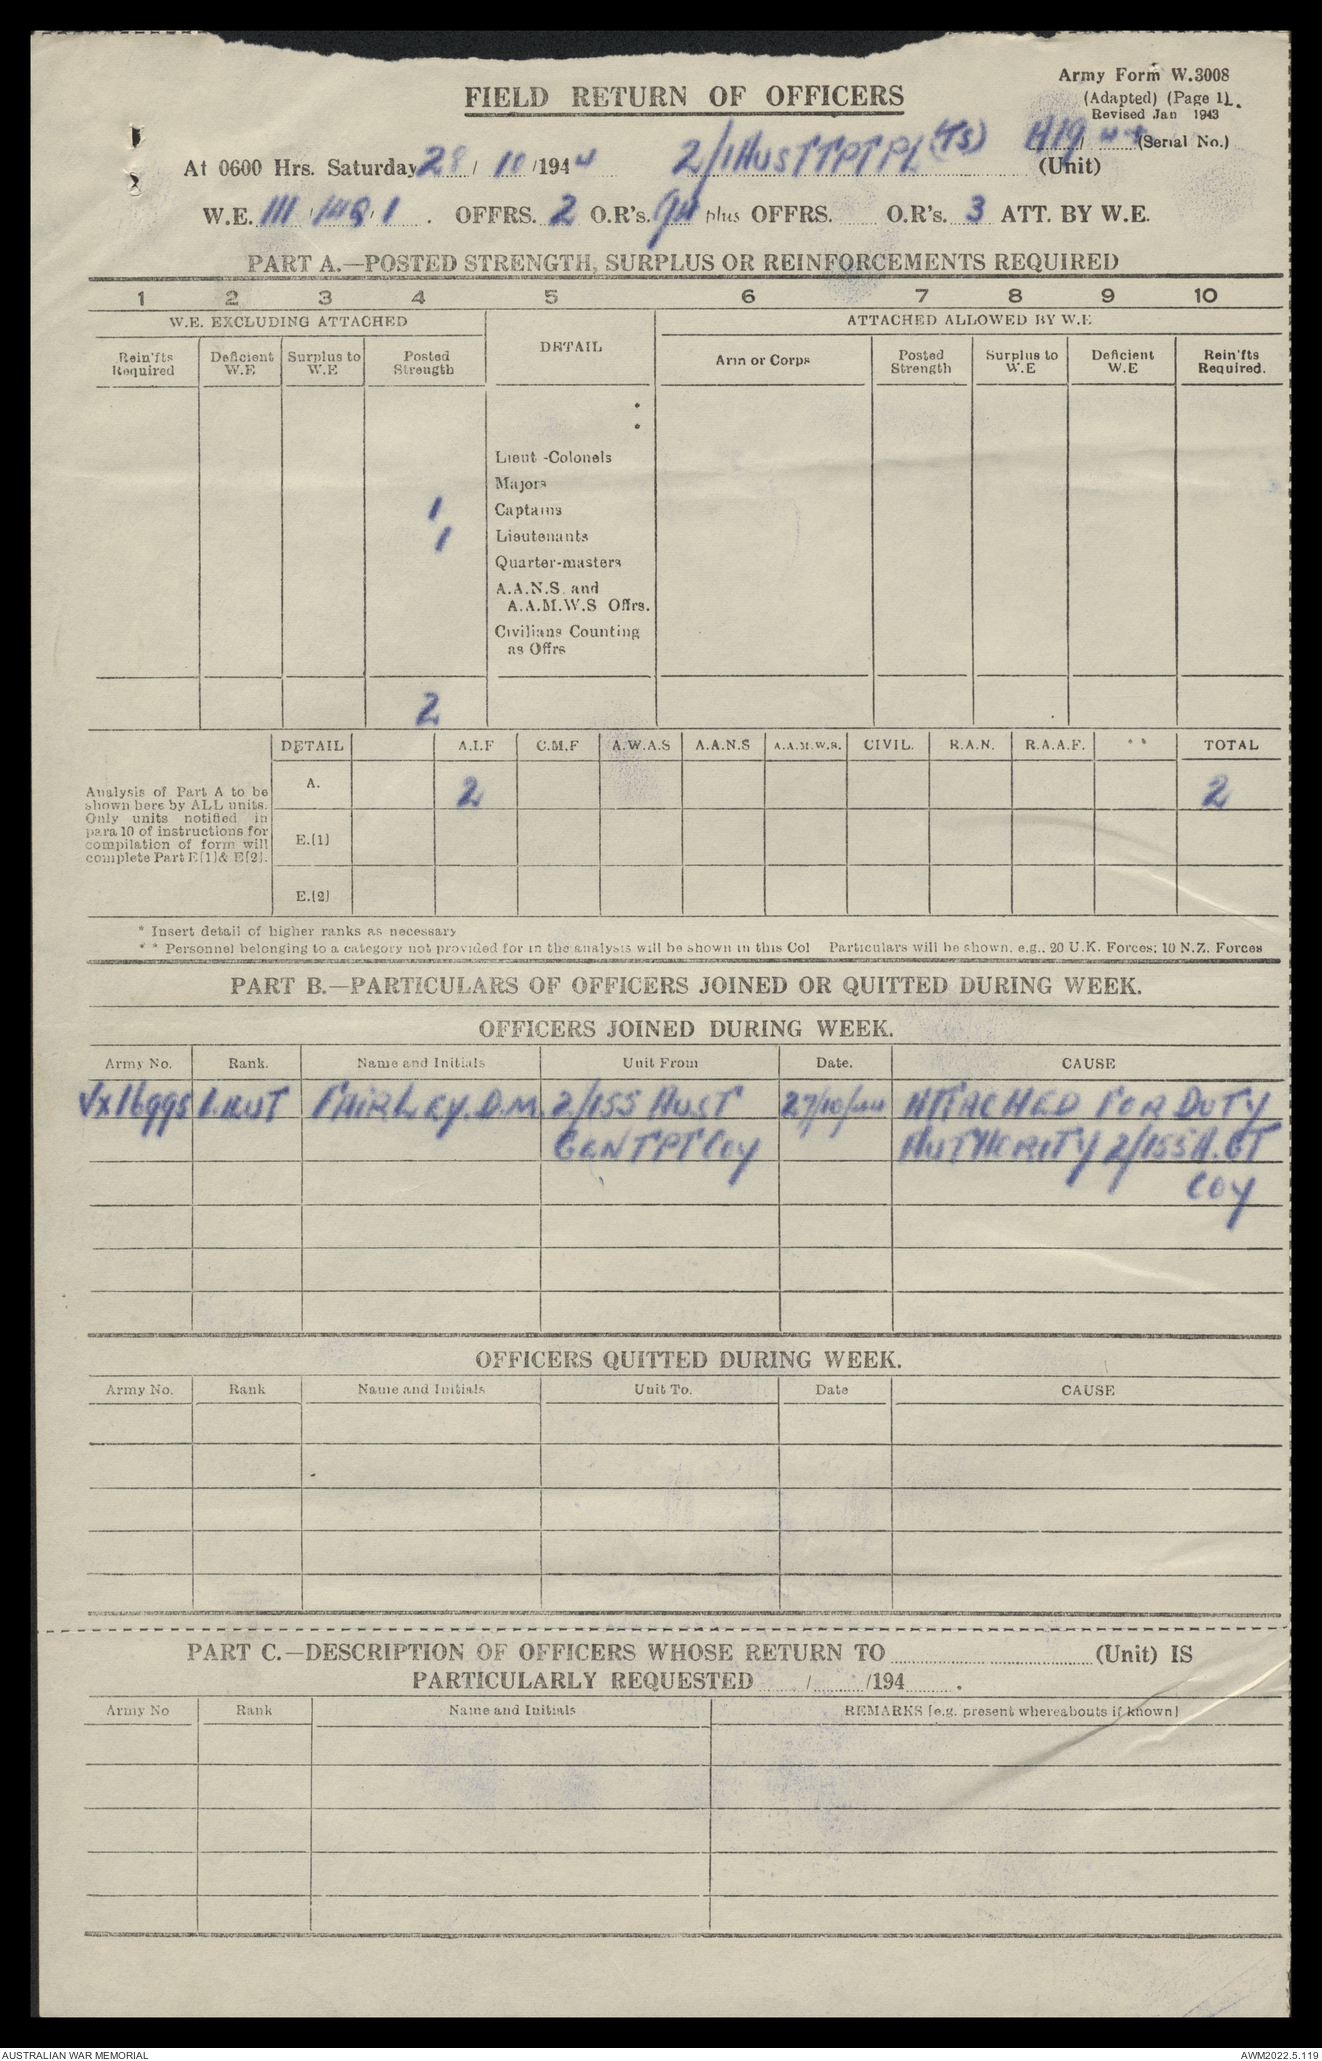 Army Form W.3008
FIELD RETURN OF OFFICERS
(Adapted) (Page 1).
Revised Jan 1943
At 0600 Hrs. Saturday 28 / 10 /1944 2/1 AUST TPT PL (TS) (Unit) (Serial No.)
W.E. III / / 1 . OFFRS. 2 O.R's. plus OFFRS. O.R's. 3 ATT. BY W.E.
PART A.—POSTED STRENGTH, SURPLUS OR REINFORCEMENTS REQUIRED
1 2 3 4 5 6 7 8 9 10
W.E. EXCLUDING ATTACHED DETAIL ATTACHED ALLOWED BY W.E
Rein'fts Required Deficient W.E Surplus to W.E Posted Strength Arm or Corps Posted Strength Surplus to W.E Deficient W.E Rein'fts Required.
Lieut -Colonels
Majors
1 Captains
1 Lieutenants
Quarter-masters
A.A.N.S. and
A.A.M.W.S Offrs.
Civilians Counting
as Offrs
2
DETAIL A.I.F C.M.F A.W.A.S A.A.N.S A.A.M.W.S. CIVIL. R.A.N. R.A.A.F. * * TOTAL
Analysis of Part A to be
shown here by ALL units.
Only units notified in
para 10 of instructions for
compilation of form will
complete Part E[1]& E[2].
A. 2 2
E.[1]
E.[2]
* Insert detail of higher ranks as necessary
* * Personnel belonging to a category not provided for in the analysis will be shown in this Col Particulars will be shown, e.g., 20 U.K. Forces; 10 N.Z. Forces
PART B.—PARTICULARS OF OFFICERS JOINED OR QUITTED DURING WEEK.
OFFICERS JOINED DURING WEEK.
Army No. Rank. Name and Initials Unit From Date. CAUSE
LIEUT FAIRLEY. D.M. 2/155 AUST 27/10/44 ATTACHED FOR DUTY
GEN TPT COY AUTHORITY 2/155 A. GT
COY
OFFICERS QUITTED DURING WEEK.
Army No. Rank Name and Initials Unit To. Date CAUSE
PART C.—DESCRIPTION OF OFFICERS WHOSE RETURN TO (Unit) IS
PARTICULARLY REQUESTED / /194 .
Army No Rank Name and Initials REMARKS [e.g. present whereabouts if known]
AUSTRALIAN WAR MEMORIAL AWM2022.5.119